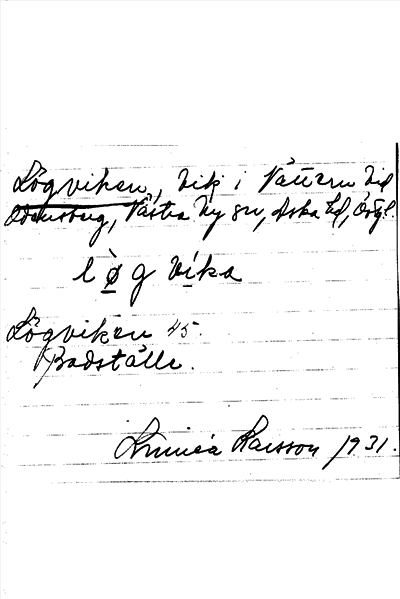 Lögviken, vik i Vättern vid
Odensberg, Västra Ny sn, Aska hd, Östgl.
lø̀g vika
Lögviken 45
Badställe.
Linnéa Karsson 1931.